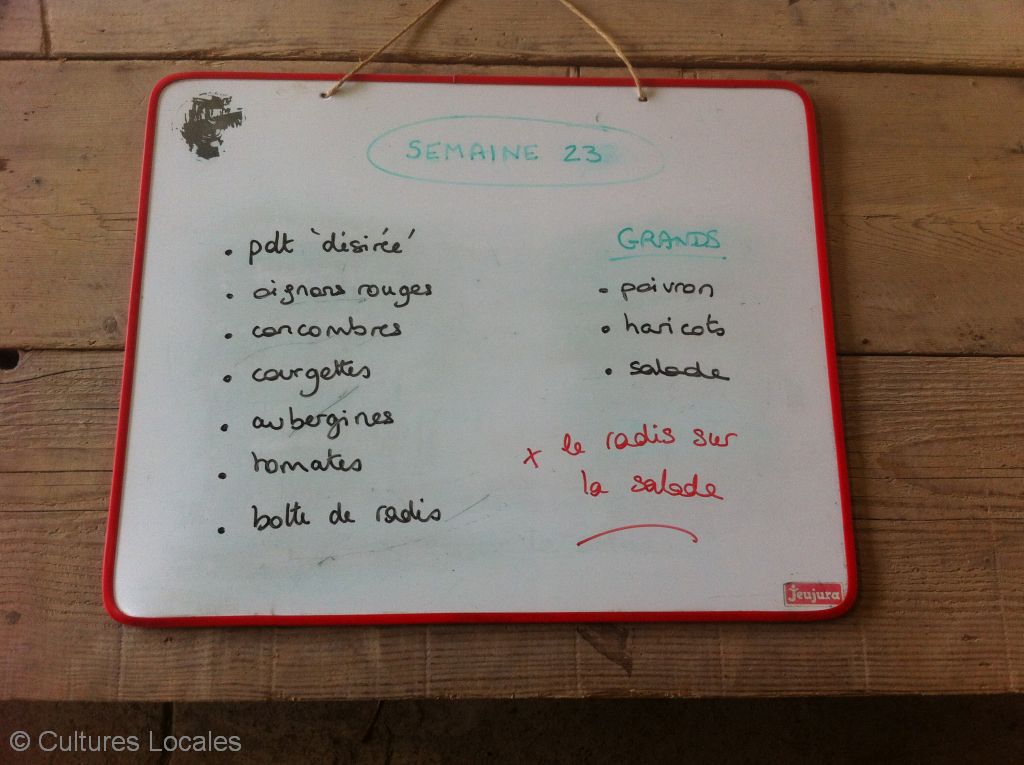 SEMAINE 23
• pdt 'désirée'
• oignons rouges
• concombres
• courgettes
• aubergines
• tomates
• botte de radis
GRANDS
• poivron
• haricots
• salade
x le radis sur
la salade
Jeujura
© Cultures Locales